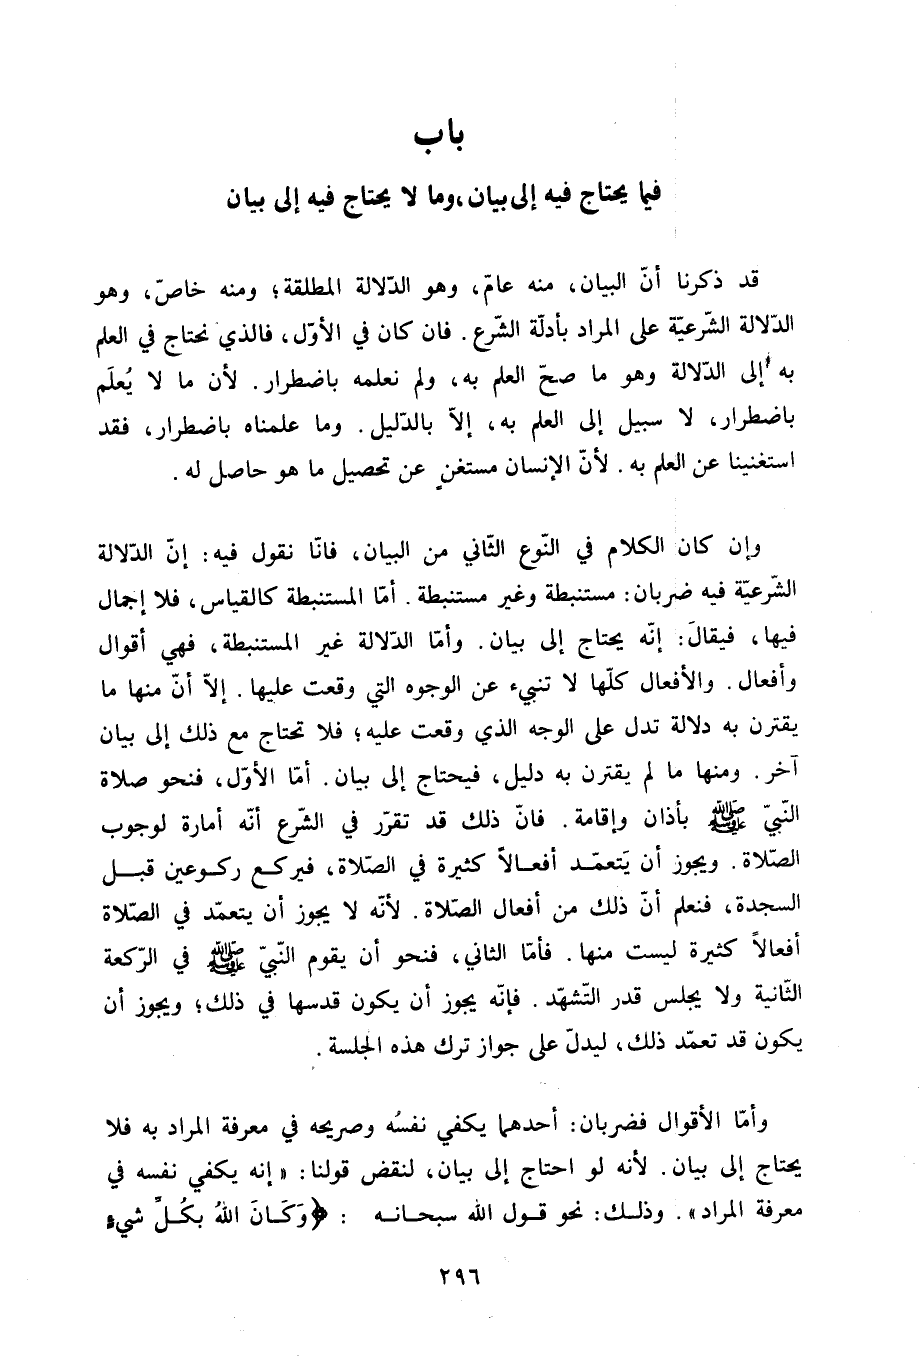 باب
فيما يحتاج فيه إلى بيان، وما لا يحتاج فيه إلى بيان
قد ذكرنا أنّ البيان، منه عامّ، وهو الدّلالة المطلقة؛ ومنه خاصّ، وهو
الدّلالة الشّرعيّة على المراد بأدلّة الشّرع. فان كان في الأوّل، فالذي نحتاج في العلم
به إلى الدّلالة وهو ما صحّ العلم به، ولم نعلمه باضطرار. لأن ما لا يُعلَم
باضطرار، لا سبيل إلى العلم به، إلاّ بالدّليل. وما علمناه باضطرار، فقد
استغنينا عن العلم به. لأنّ الإنسان مستغنٍ عن تحصيل ما هو حاصل له.
وإن كان الكلام في النّوع الثّاني من البيان، فانّا نقول فيه: إنّ الدّلالة
الشّرعيّة فيه ضربان: مستنبطة وغير مستنبطة. أمّا المستنبطة كالقياس، فلا إجمال
فيها، فيقالَ: إنّه يحتاج إلى بيان. وأمّا الدّلالة غير المستنبطة، فهي أقوال
وأفعال. والأفعال كلّها لا تنبيء عن الوجوه التي وقعت عليها. إلاّ أنّ منها ما
يقترن به دلالة تدل على الوجه الذي وقعت عليه؛ فلا تحتاج مع ذلك إلى بيان
آخر. ومنها ما لم يقترن به دليل، فيحتاج إلى بيان. أمّا الأوّل، فنحو صلاة
النّبيّ ﷺ بأذان وإقامة. فانّ ذلك قد تقرّر في الشّرع أنّه أمارة لوجوب
الصّلاة. ويجوز أن يَتعمّد أفعالاً كثيرة في الصّلاة، فيركع ركوعين قبل
السجدة، فنعلم أنّ ذلك من أفعال الصّلاة. لأنّه لا يجوز أن يتعمّد في الصّلاة
أفعالاً كثيرة ليست منها. فأمّا الثاني، فنحو أن يقوم النّبيّ ﷺ في الرّكعة
الثّانية ولا يجلس قدر التّشهّد. فإنّه يجوز أن يكون قدسها في ذلك؛ ويجوز أن
يكون قد تعمّد ذلك، ليدلّ على جواز ترك هذه الجلسة.
وأمّا الأقوال فضربان: أحدهما يكفي نفسُه وصريحه في معرفة المراد به فلا
يحتاج إلى بيان. لأنه لو احتاج إلى بيان، لنقض قولنا: «إنه يكفي نفسه في
معرفة المراد». وذلك: نحو قول الله سبحانه : ﴿وَكَانَ اللهُ بكُلِّ شيءٍ
٢٩٦